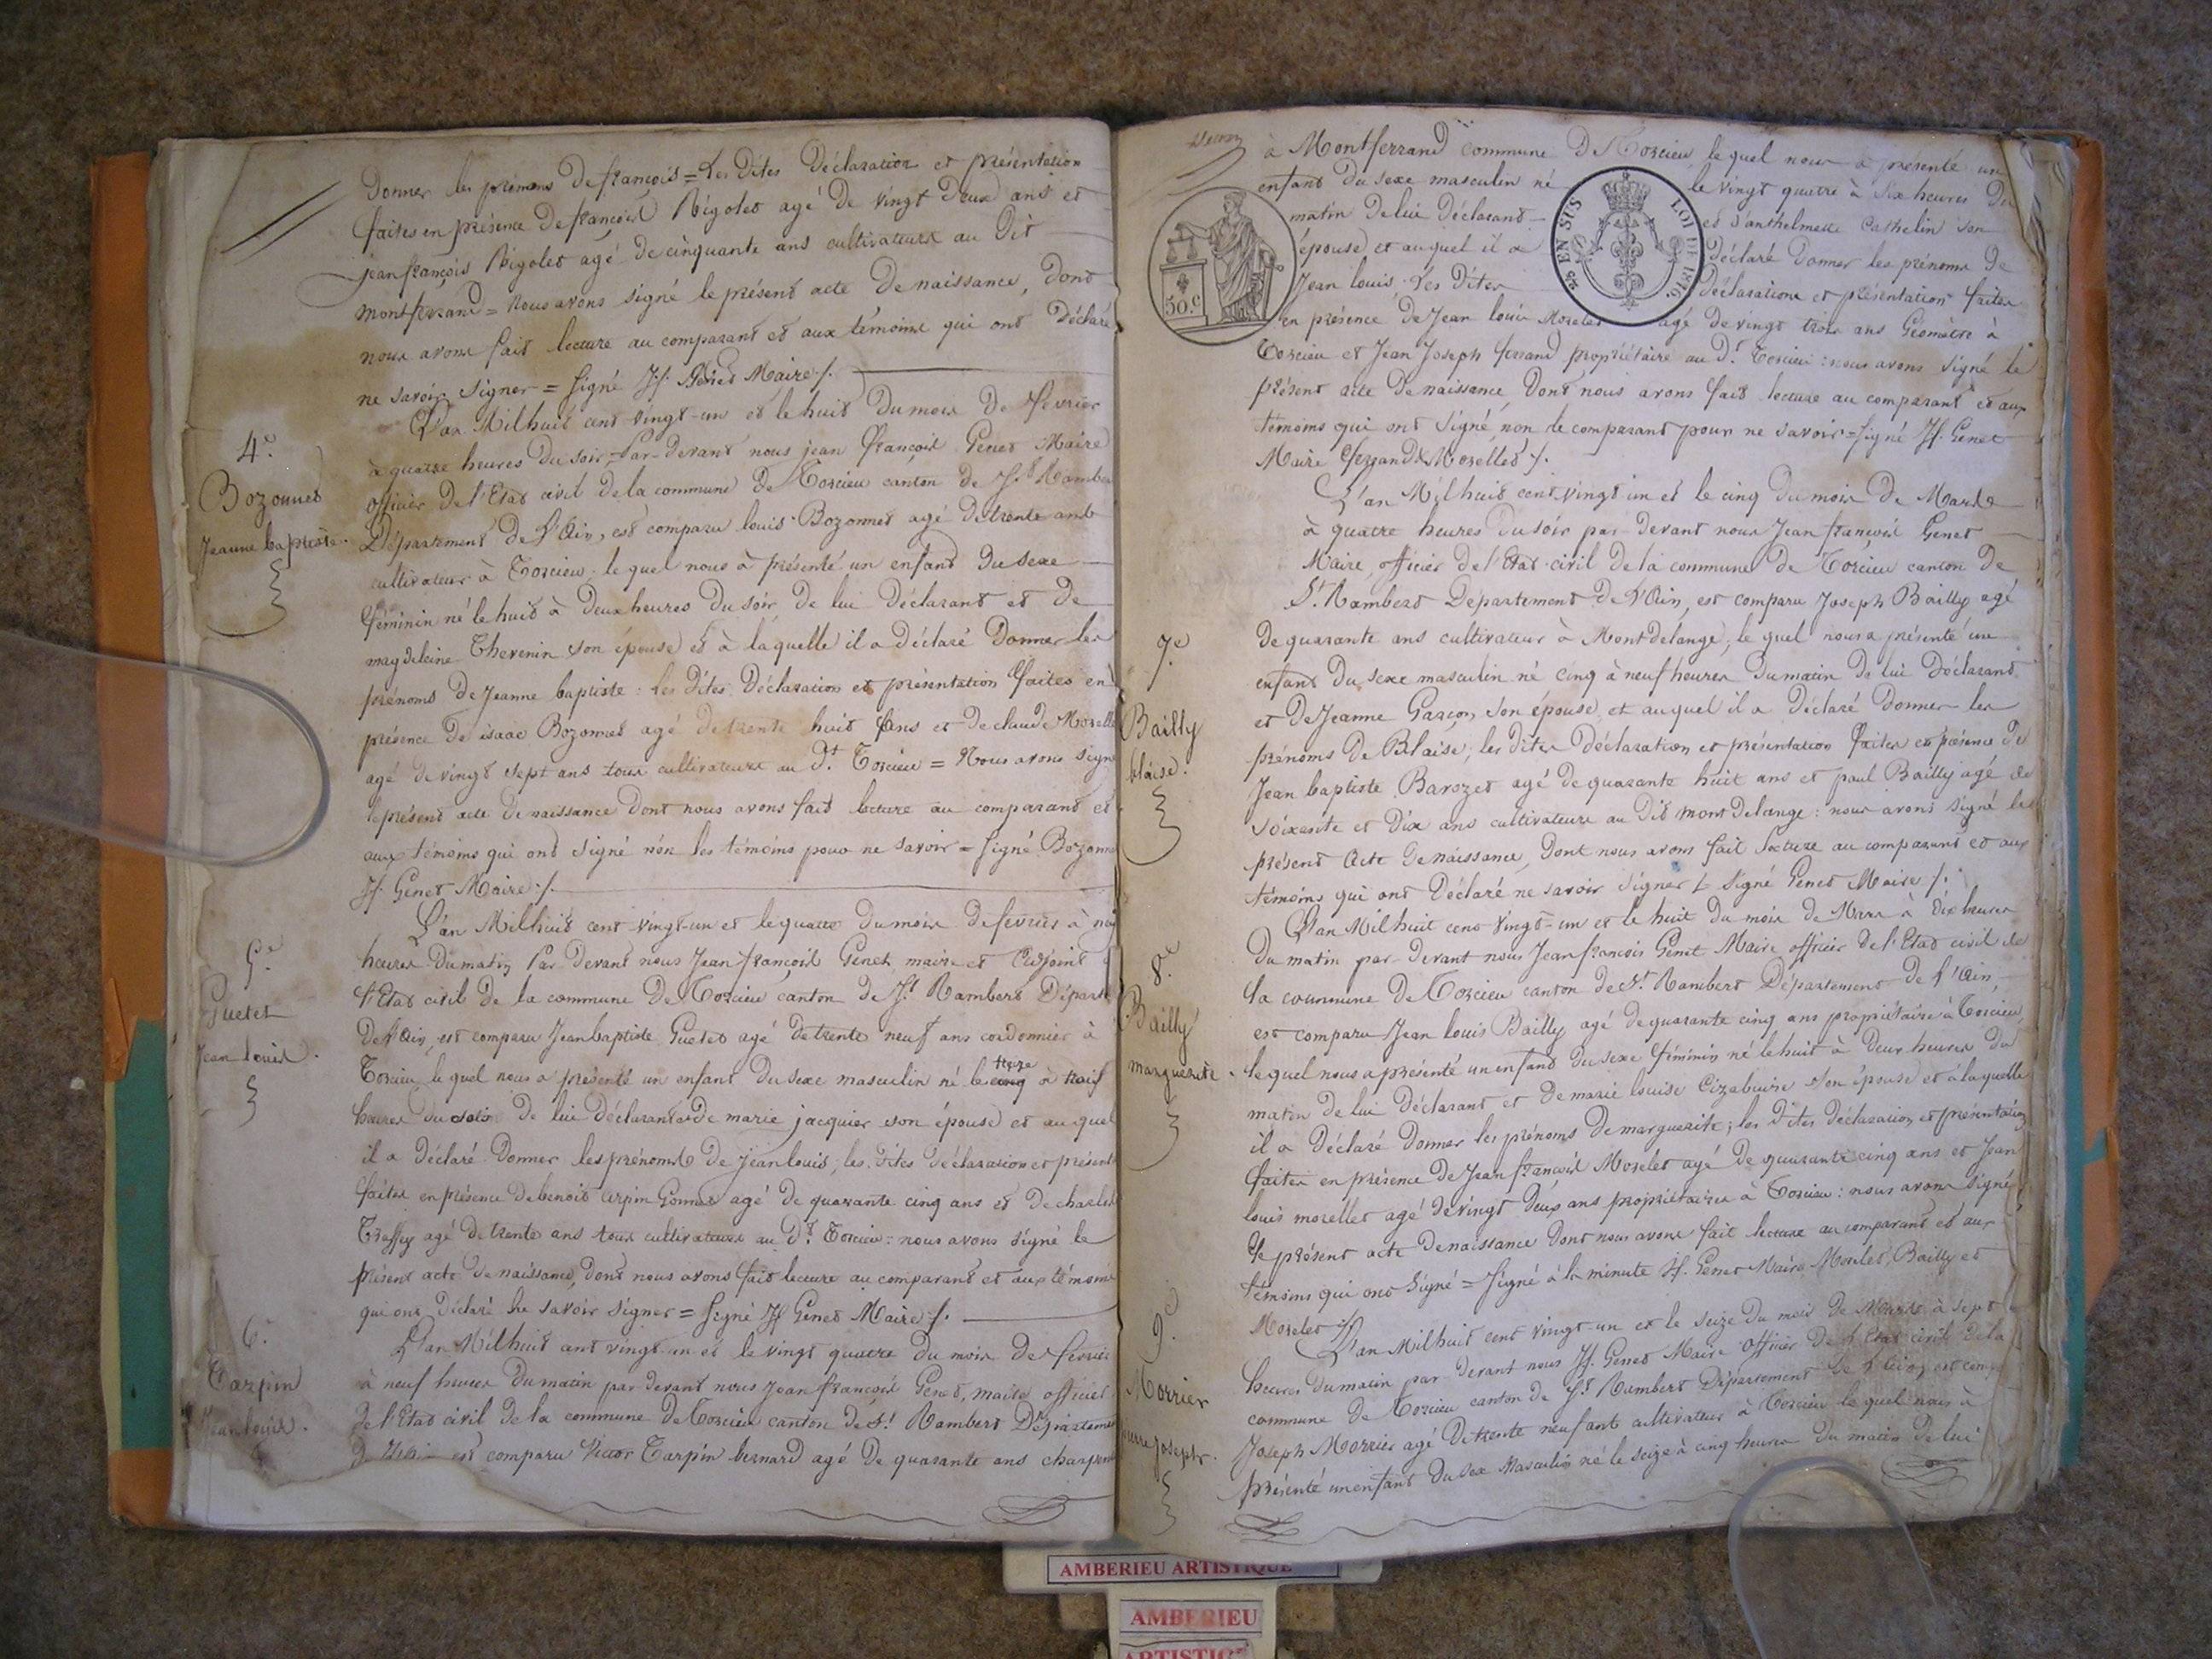 Donner les prénoms de françois = Les Dites Déclaration et présentation
faites en présence de françois Rigolet agé de vingt Deux ans et
jean françois Rigolet agé de cinquante ans cultivateurs au Dit
montferrand = Nous avons signé le présent acte de naissance, dont
nous avons fait lecture au comparant et aux témoins qui ont Déclaré
ne savoir signer = signé Jf. Genet Maire ./.
4e.
Bozonnet
Jeanne baptiste.
L'an Milhuit cent vingt-un et le huit du mois de février
à quatre heures du soir, Par-devant nous jean françois Genet Maire
officier de l'Etat civil de la commune de Torcieu canton de St. Rambert
Département de l'Ain, est comparu louis Bozonnet agé de trente ans
cultivateur à Torcieu, le quel nous à présenté un enfant du sexe
féminin né le huit à Deux heures du soir de lui Déclarant et de
magdeleine Thevenin son épouse et à laquelle il a déclaré Donner les
prénoms de Jeanne baptiste : les Dites Déclaration et présentation faites en
présence de isaac Bozonnet agé de trente huit ans et de claude Morelle
agé de vingt sept ans tous cultivateurs au dt. Torcieu = Nous avons signé
le présent acte de naissance dont nous avons fait lecture au comparant et
aux témoins qui ont signé non les témoins pour ne savoir = signé Bozonnet
Jf. Genet Maire ./.
5e.
Guetet
Jean louis.
L'an Milhuit cent vingt-un et le quatre du mois de fevrier à
heures du matin Par Devant nous Jean françois Genet maire et Adjoint
l'Etat civil de la commune De Torcieu canton de St. Rambert Départ
de l'Ain, est comparu Jean baptiste Guetet agé de trente neuf ans cordonnier à
treize
Torcieu le quel nous a présenté un enfant du sexe masculin né le cinq à
heures du soir de lui déclarant et de marie jacquier son épouse et au quel
il a déclaré Donner les prénoms de jean louis, les dites déclaration et présent
faites en présence de benoit arpin Gonnet agé de quarante cinq ans et de charles
Traffey agé de trente ans tous cultivateurs au dt. Torcieu = nous avons signé le
présent acte de naissance, dont nous avons fait lecture au comparant et aux témoins
qui ont Déclaré ne savoir signer = signé Jf Genet Maire ./.
6e.
Tarpin
Jean louis.
L'an Milhuit cent vingt-un et le vingt quatre du mois de fevrier
à neuf heures du matin par devant nous Jean françois Genet, maire officier
de l'Etat civil de la commune de Torcieu canton de St. Rambert Départemen
est comparu Victor Tarpin bernard agé de quarante ans charpen
à Montferrand commune De Torcieu le quel nous à présenté un
enfant du sexe masculin né le vingt quatre à six heures du
matin de lui Déclarant et d'anthelmette Cathelin son
épouse et au quel il a déclaré Donner les prénoms de
Jean louis, les Dites Déclaration et présentation faites
en présence de Jean louis Morelet agé de vingt trois ans Géomètre à
Torcieu et Jean Joseph ferrand propriétaire au dt. Torcieu : nous avons signé le
présent acte de naissance, Dont nous avons fait lecture au comparant et aux
témoins qui ont signé, non le comparant pour ne savoir = signé Jf. Genet
Maire ferrand & Morellet ./.
50.c
25 EN SUS
LOI DE 1816.
7e.
Bailly
blaise.
L'an Milhuit cent vingt un et le cinq du mois de Mars
à quatre heures du soir par-devant nous Jean françois Genet
Maire, officier de l'Etat-civil de la commune de Torcieu canton de
St. Rambert Departement de l'Ain, est comparu Joseph Bailly agé
de quarante ans cultivateur à Mont de lange, le quel nous a présenté un
enfant du sexe masculin né cinq à neuf heures du matin de lui Déclarant
et de Jeanne Garçon son épouse, et au quel il a Déclaré Donner les
prénoms de Blaise ; les Dites Déclaration et présentation faites en présence de
Jean baptiste Barozet agé de quarante huit ans et paul Bailly agé de
soixante et Dix ans cultivateurs au Dit mont de lange : nous avons signé le
présent Acte de naissance, Dont nous avons fait lecture au comparant et aux
témoins qui ont Déclaré ne savoir signer signé Genet Maire ./.
8e.
Bailly
marguerite.
L'an Milhuit cent vingt-un et le huit du mois de Mars à dix heures
du matin par-devant nous Jean françois Genet Maire officier de l'Etat civil de
la commune de Torcieu canton de St. Rambert Département de l'Ain,
est comparu Jean Louis Bailly agé de quarante cinq ans propriétaire à Torcieu,
le quel nous a présenté un enfant du sexe féminin né le huit à Deux heures du
matin de lui Déclarant et de marie louise Cizabuire son épouse et à la quelle
il a Déclaré Donner les prénoms de marguerite ; les Dites déclaration et présentation
faites en présence de Jean françois Morelet agé de quarante cinq ans et Jean
louis morellet agé de vingt Deux ans propriétaires à Torcieu : nous avons signé
le présent acte de naissance Dont nous avons fait lecture au comparant et aux
témoins qui ont signé = signé à la minute Jf. Genet Maire Morelet, Bailly et
Morelet ./.
9e.
Morrier
pierre joseph.
L'an Milhuit cent vingt-un et le seize du mois de Mars à sept
heures du matin par-devant nous Jf. Genet Maire officier de l'Etat civil de la
commune de Torcieu canton de St. Rambert Département de l'Ain, est comp
Joseph Morrier agé de trente neuf ans cultivateur à Torcieu le quel nous à
présenté un enfant du sexe Masculin né le seize à cinq heures du matin de lui
AMBERIEU ARTISTIQUE
AMBERIEU
ARTISTIQ